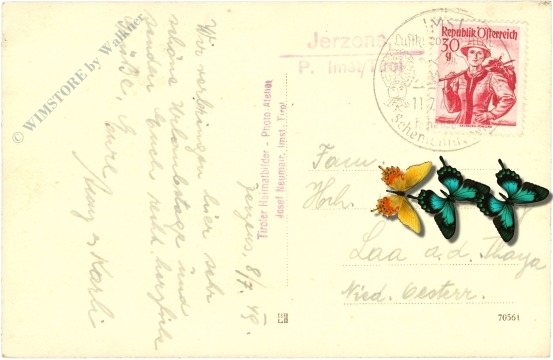 Wir verbringen hier sehr
schöne Urlaubstage und
senden Euch recht herzliche
Grüße, Eure
Karli
Jerzens, 8/7.49.
© WIMSTORE by Walkner
Tiroler Heimatbilder - Photo-Atelier
Josef Neumair, Imst, Tirol
Jerzens
P. Imst/Tirol
IMST
Republik Österreich
30
g
Fam.
Hrh.
Laa a.d. Thaya
Nied. Oesterr.
70561